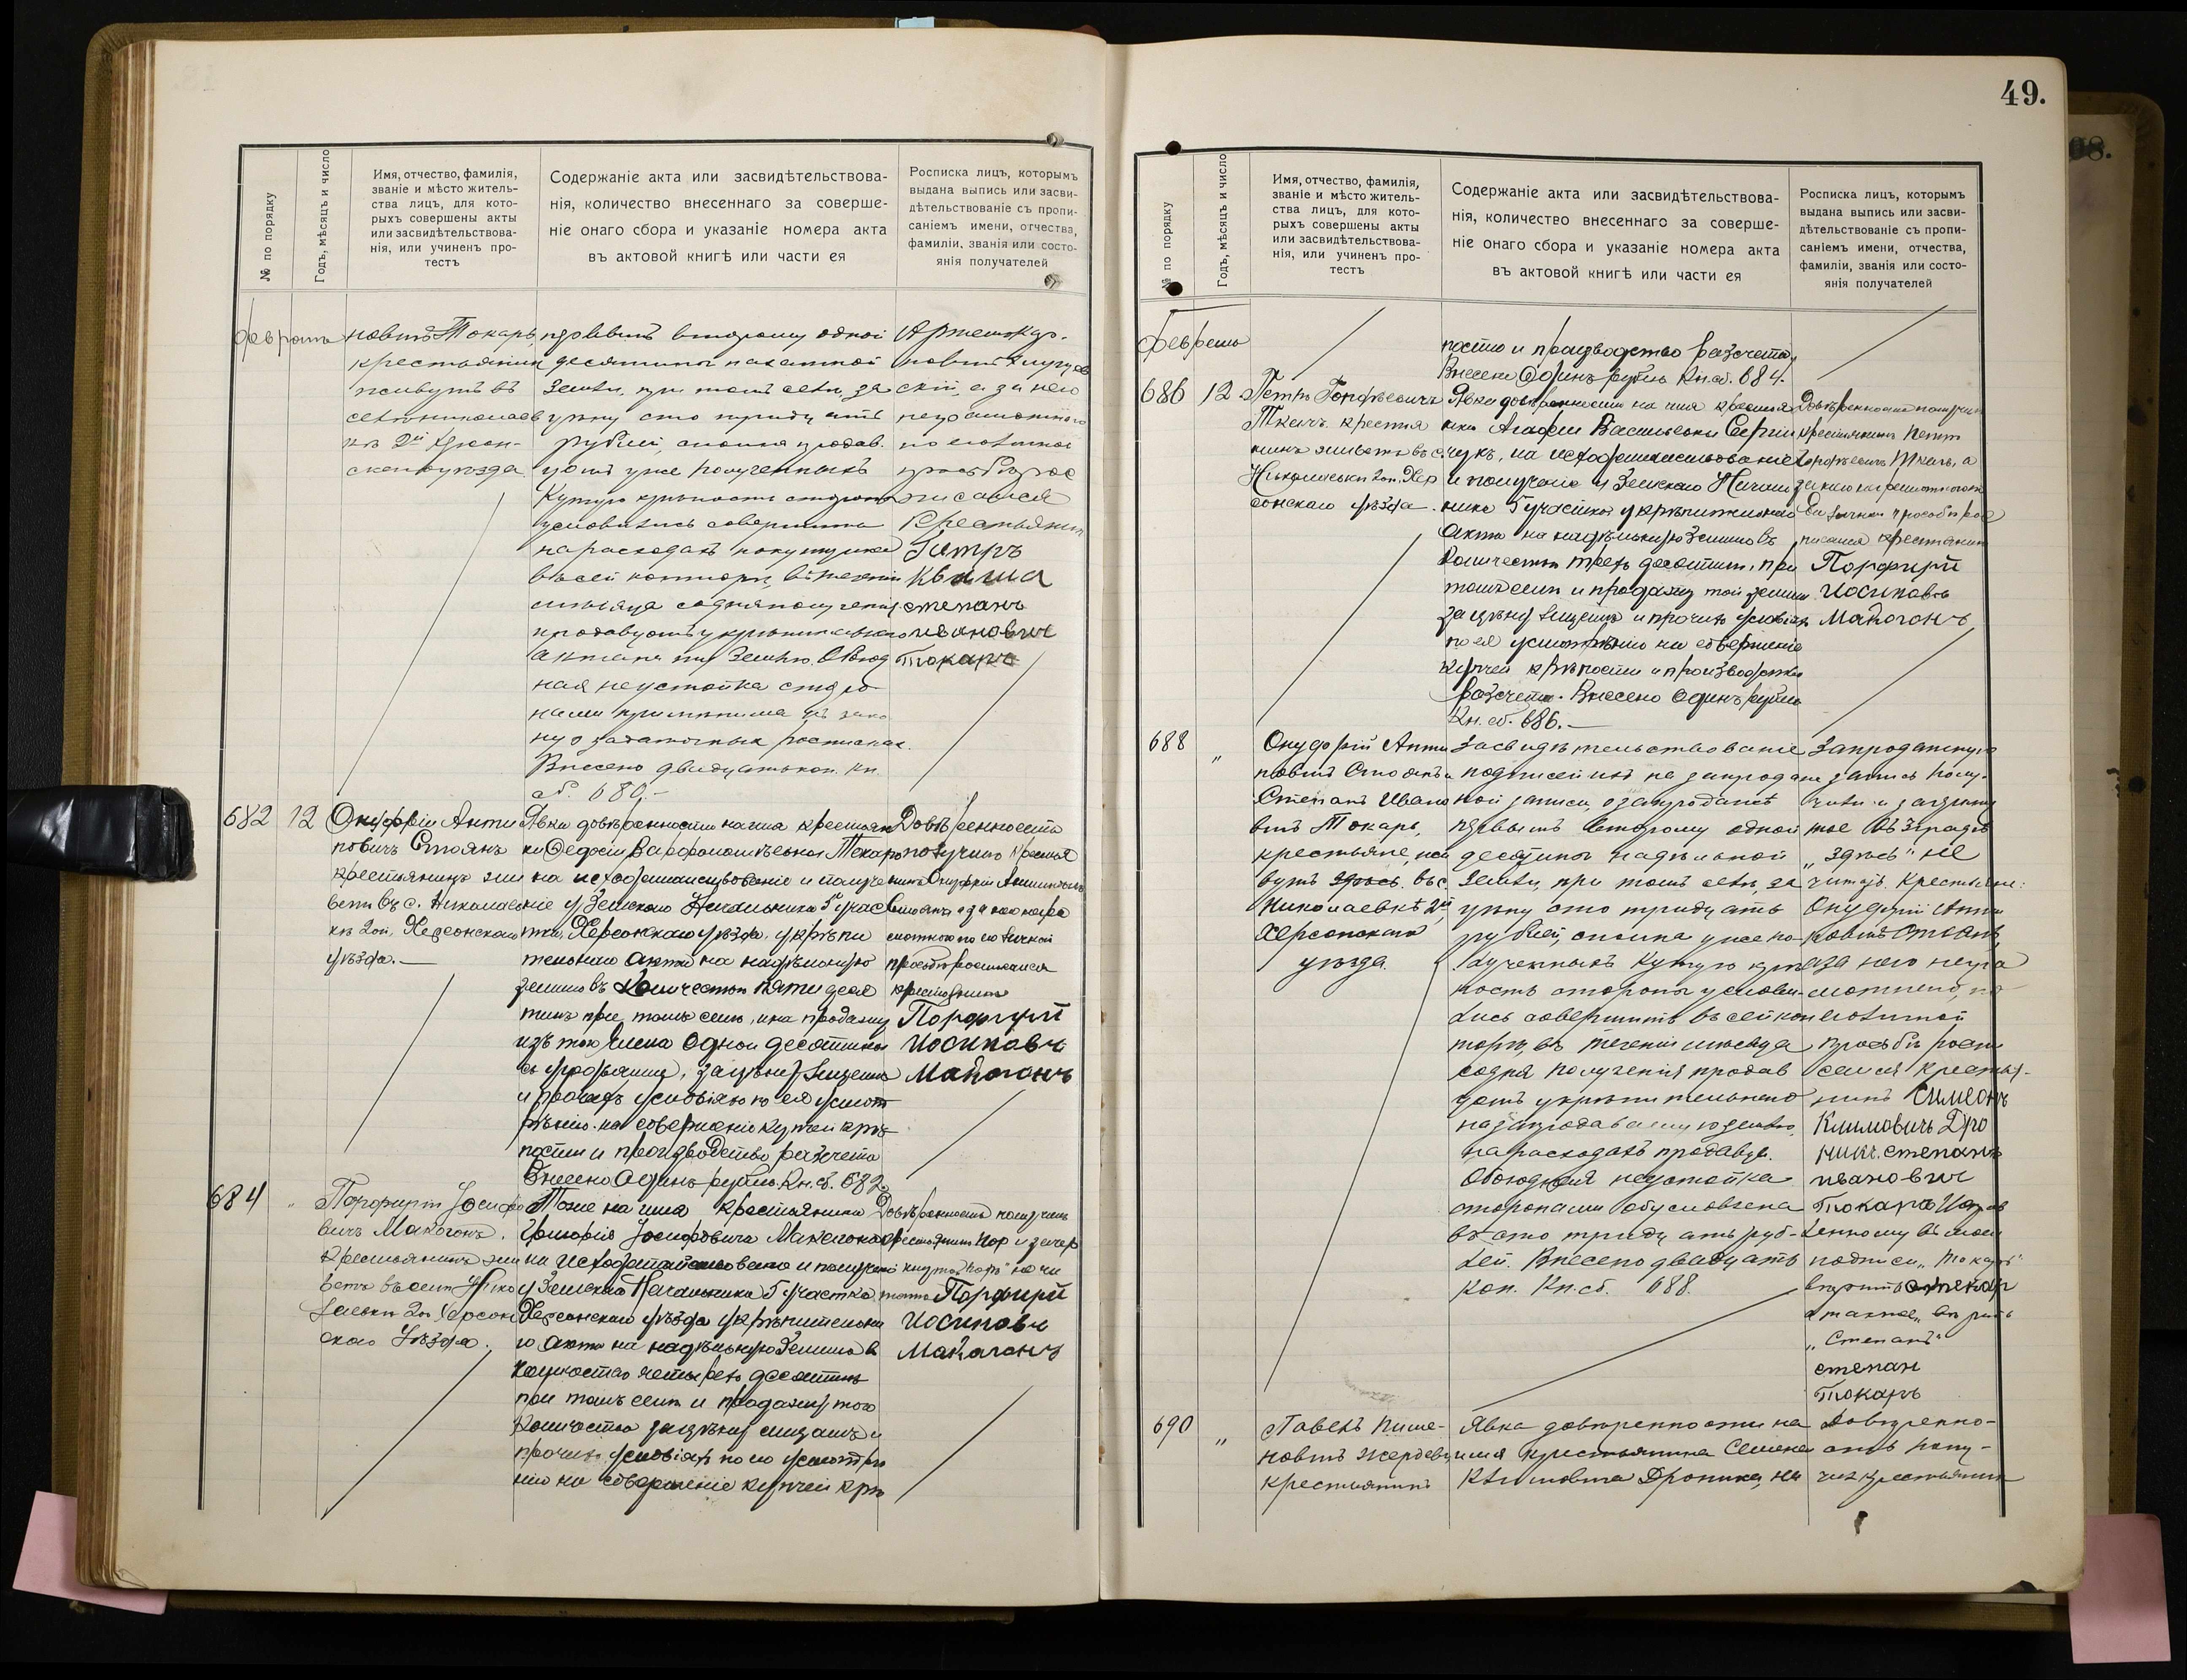 49.
№ по порядку
Годъ, мѣсяцъ и число
Имя, отчество, фамилія,
званіе и мѣсто житель-
ства лицъ, для кото-
рыхъ совершены акты
или засвидѣтельствова-
нія, или учиненъ про-
тестъ
Содержаніе акта или засвидѣтельствова-
нія, количество внесеннаго за соверше-
ніе онаго сбора и указаніе номера акта
въ актовой книгѣ или части ея
Росписка лицъ, которымъ
выдана выпись или засви-
дѣтельствованіе съ пропи-
саніемъ имени, отчества,
фамиліи, званія или состо-
янія получателей
новичъ Токарь,
крестьянин
живутъ въ
первымъ второму одной
десятины
земли, при томъ селѣ, за
цѣну сто тридцать
рублей,
уже полученныхъ
Купчую крѣпость стороны
условились совершить
на расходахъ
въ сей конторѣ въ теченіи
мѣсяца со дня полученія
продавцомъ укрѣпительнаго
акта на эту землю. Обоюд
ная неустойка сторо
нами примѣнима къ зако
ну о задаточныхъ роспискахъ.
Внесено двадцать коп. Кн.
сб. 680.-
неграмотнаго
по личной
просьбѣ рос
писался
Крестьянин
Кваша
степанъ
ивановичъ
Токаръ
682
12
Онуфрій Анти
повичъ Стоянъ
крестьянинъ жи
ветъ въ с. Николаев
кѣ 2ой, Херсонскаго
уѣзда.—
Явка довѣренности на имя крестьян
ки Федосіи Варфоломѣевной Токарь
на исходатайствованіе и получе
ніе у Земскаго Начальника 5 учас
тка, Херсонскаго уѣзда, укрѣпи
тельнаго акта на надѣльную
землю въ количествѣ пяти деся
тинъ при томъ селѣ, и на продажу
изъ того числа одной десятины
за цѣну
и прочихъ условіяхъ по ея усмот
рѣнію на совершеніе купчей крѣ
пости и производство разсчета
Внесено Одинъ рубль. Кн. сб. 682.
Довѣренность
получилъ крестья
нинъ Онуфрій Антиповичъ
Стоянъ а за него негра
мотнаго по его личной
просьбѣ росписался
крестьянинъ
Порфирій
Иосиповъ
Макогонъ
684
"
Порфирій Іосифо
вичъ Макогонъ,
крестьянинъ жи
ветъ въ селѣ Нико
лаевки 2ой Херсон
скаго Уѣзда.
Тоже на имя крестьянина
Григорія Іосифовича Макогона
на исходатайствованіе и полученіе
у Земскаго Начальника 5 участка
Херсонскаго уѣзда укрѣпительна
го акта на надѣльную землю въ
количествѣ четырехъ десятинъ
при томъ селѣ и продажу того
количества за цѣну лицамъ и
прочихъ условіяхъ по его усмотрѣ
нію на совершеніе купчей крѣ
Довѣренность получилъ
крестьянинъ
Порфирій
Иосиповъ
Макагонъ
№ по порядку
Годъ, мѣсяцъ и число
Имя, отчество, фамилія,
званіе и мѣсто житель-
ства лицъ, для кото-
рыхъ совершены акты
или засвидѣтельствова-
нія, или учиненъ про-
тестъ
Содержаніе акта или засвидѣтельствова-
нія, количество внесеннаго за соверше-
ніе онаго сбора и указаніе номера акта
въ актовой книгѣ или части ея
Росписка лицъ, которымъ
выдана выпись или засви-
дѣтельствованіе съ пропи-
саніемъ имени, отчества,
фамиліи, званія или состо-
янія получателей
пости и производство разсчета,
Внесено Одинъ рубль Кн. сб. 684.
686
12
Петръ
Ткачъ крестья
нинъ живетъ въ с.
Николаевки 2ой Хер
сонскаго уѣзда.
Явка довѣренности на имя крестья
нки Агафіи Васильевны
на исходатайствованіе
и полученіе у Земскаго Началь
ника 5 участка укрѣпительнаго
Акта на надѣльную землю въ
количествѣ трехъ десятинъ, при
томъ селѣ и продажу той земли
за цѣну лицамъ и прочихъ условіяхъ
по ея усмотрѣнію на совершеніе
купчей крѣпости и производство
разсчета. Внесено Одинъ рубль
Кн. сб. 686.—
Довѣренность получилъ
крестьянинъ Петръ
Ткачъ, а
за него неграмотнаго по
его личной просьбѣ рос
писался крестьянинъ
Порфирій
Иосиповъ
Макогонъ
688
"
Онуфрій Анти
повичъ Стоянъ и
Степанъ Ивано
вичъ Токарь,
крестьяне, жи
вутъ здѣсь. въ с.
Николаевкѣ 2й
Херсонскаго
уѣзда.
Засвидѣтельствованіе
подписей ихъ на запродаж
ной записи, о запродажѣ
первымъ второму одной
десятины надѣльной
земли, при томъ селѣ, за
цѣну сто тридцать
рублей, сполна уже по-
лученныхъ Купчую крѣ
пость стороны услови-
лись совершить въ сей кон
торѣ, въ теченіи мѣсяца
со дня полученія продав
цомъ укрѣпительнаго
на запродаваемую землю,
на расходахъ продавца.
Обоюдная неустойка
сторонами обусловлена
въ сто тридцать руб-
лей. Внесено двадцать
коп. Кн. сб. 688.
Запродажную
запись полу-
чили и зачеркну
тое въ 3 графѣ
„здѣсь" не
читать. Крестьяне:
Онуфрій Анти
повичъ Стоянъ,
а за него негра
мотнаго, по
его личной
просьбѣ роспи
сался крестья-
нинъ Симеонъ
Климовичъ Дро
никъ. степанъ
ивановичъ
Токаръ
подписи „Токаръ"
вѣрить
„Степанъ"
степан
Токаръ
690
"
Павелъ Пиме-
новичъ
крестьянинъ
Явка довѣренности на
имя крестьянина Семена
Климовича Дроника, на
Довѣренно-
сть полу-
чилъ крестьянинъ